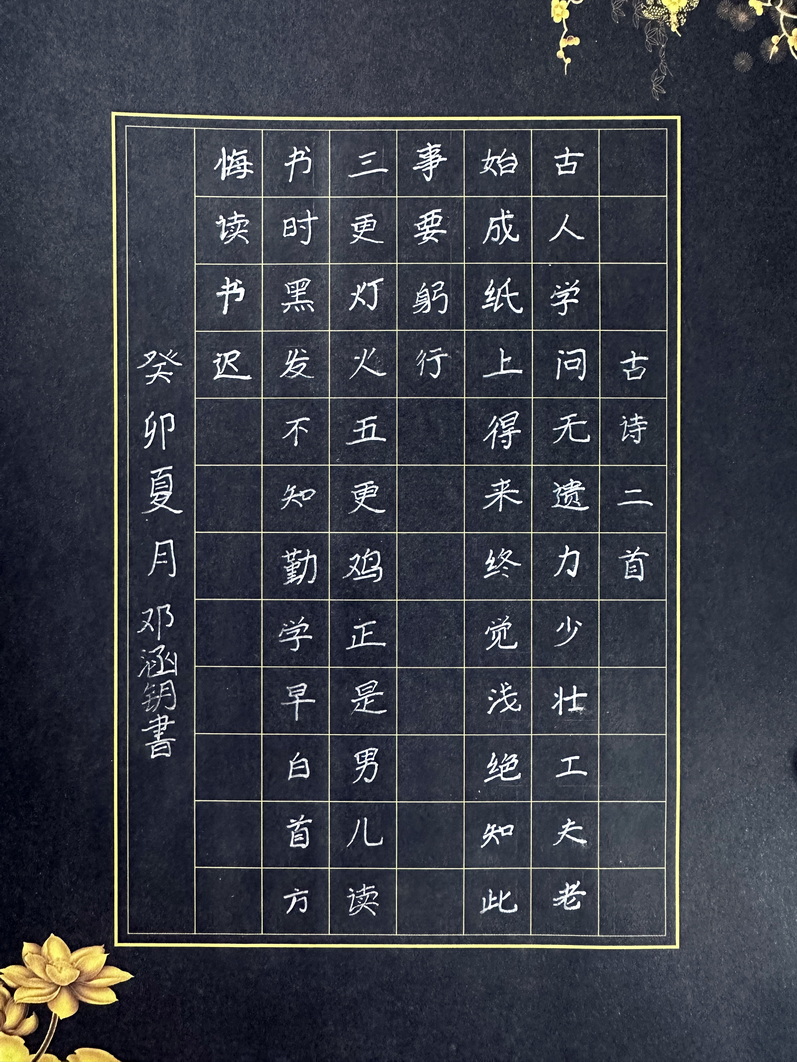 古诗二首
古人学问无遗力少壮工夫老
始成纸上得来终觉浅绝知此
事要躬行
三更灯火五更鸡正是男儿读
书时黑发不知勤学早白首方
悔读书迟
癸卯夏月邓涵钥書